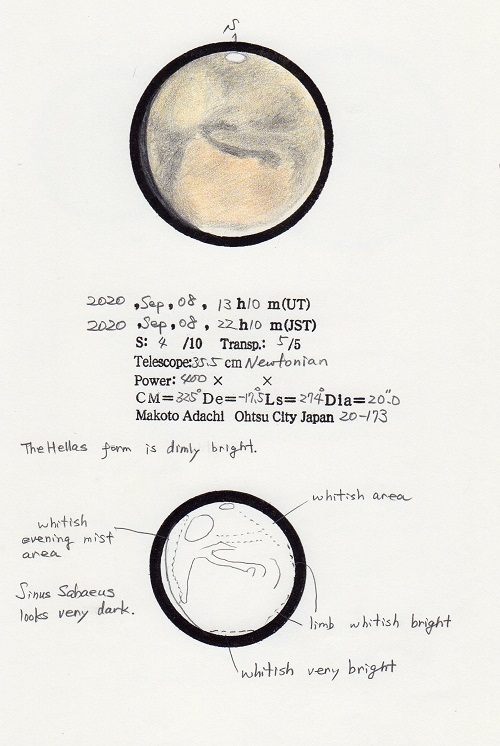 S
2020 , Sep , 08 , 13 h 10 m (UT)
2020 , Sep , 08 , 22 h 10 m (JST)
S: 4 /10 Transp.: 5/5
Telescope: 35.5 cm Newtonian
Power: 400 × ×
CM=325° De=-17.5° Ls=274° Dia=20".0
Makoto Adachi Ohtsu City Japan 20-173
The Hellas form is dimly bright.
whitish area
whitish
evening mist
area
Sinus Sabaeus
looks very dark.
limb whitish bright
whitish very bright